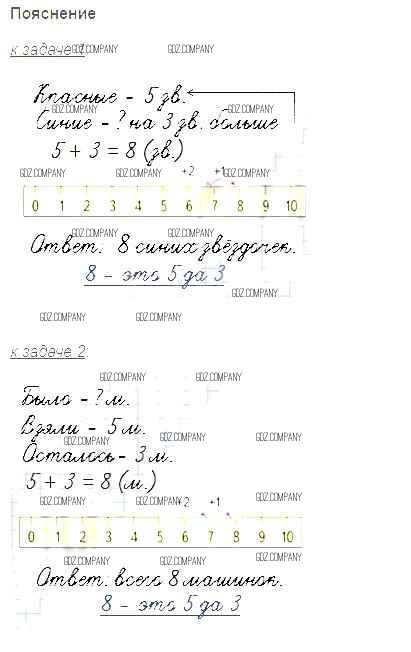 Пояснение
к задаче 1:
GDZ.COMPANY GDZ.COMPANY
Красные - 5 зв.
GDZ.COMPANY GDZ.COMPANY
Синие - ? на 3 зв. больше
5 + 3 = 8 (зв.)
GDZ.COMPANY GDZ.COMPANY +2 +1 GDZ.COMPANY
0 1 2 3 4 5 6 7 8 9 10
GDZ.COMPANY GDZ.COMPANY
Ответ: 8 синих звёздочек.
8 - это 5 да 3
GDZ.COMPANY
GDZ.COMPANY GDZ.COMPANY
к задаче 2:
GDZ.COMPANY GDZ.COMPANY
Было - ? м.
Взяли - 5 м.
GDZ.COMPANY GDZ.COMPANY GDZ.COMPANY
Осталось - 3 м.
5 + 3 = 8 (м.)
GDZ.COMPANY GDZ.COMPANY +2 +1 GDZ.COMPANY
0 1 2 3 4 5 6 7 8 9 10
GDZ.COMPANY GDZ.COMPANY GDZ.COMPANY
Ответ: всего 8 машинок.
8 - это 5 да 3